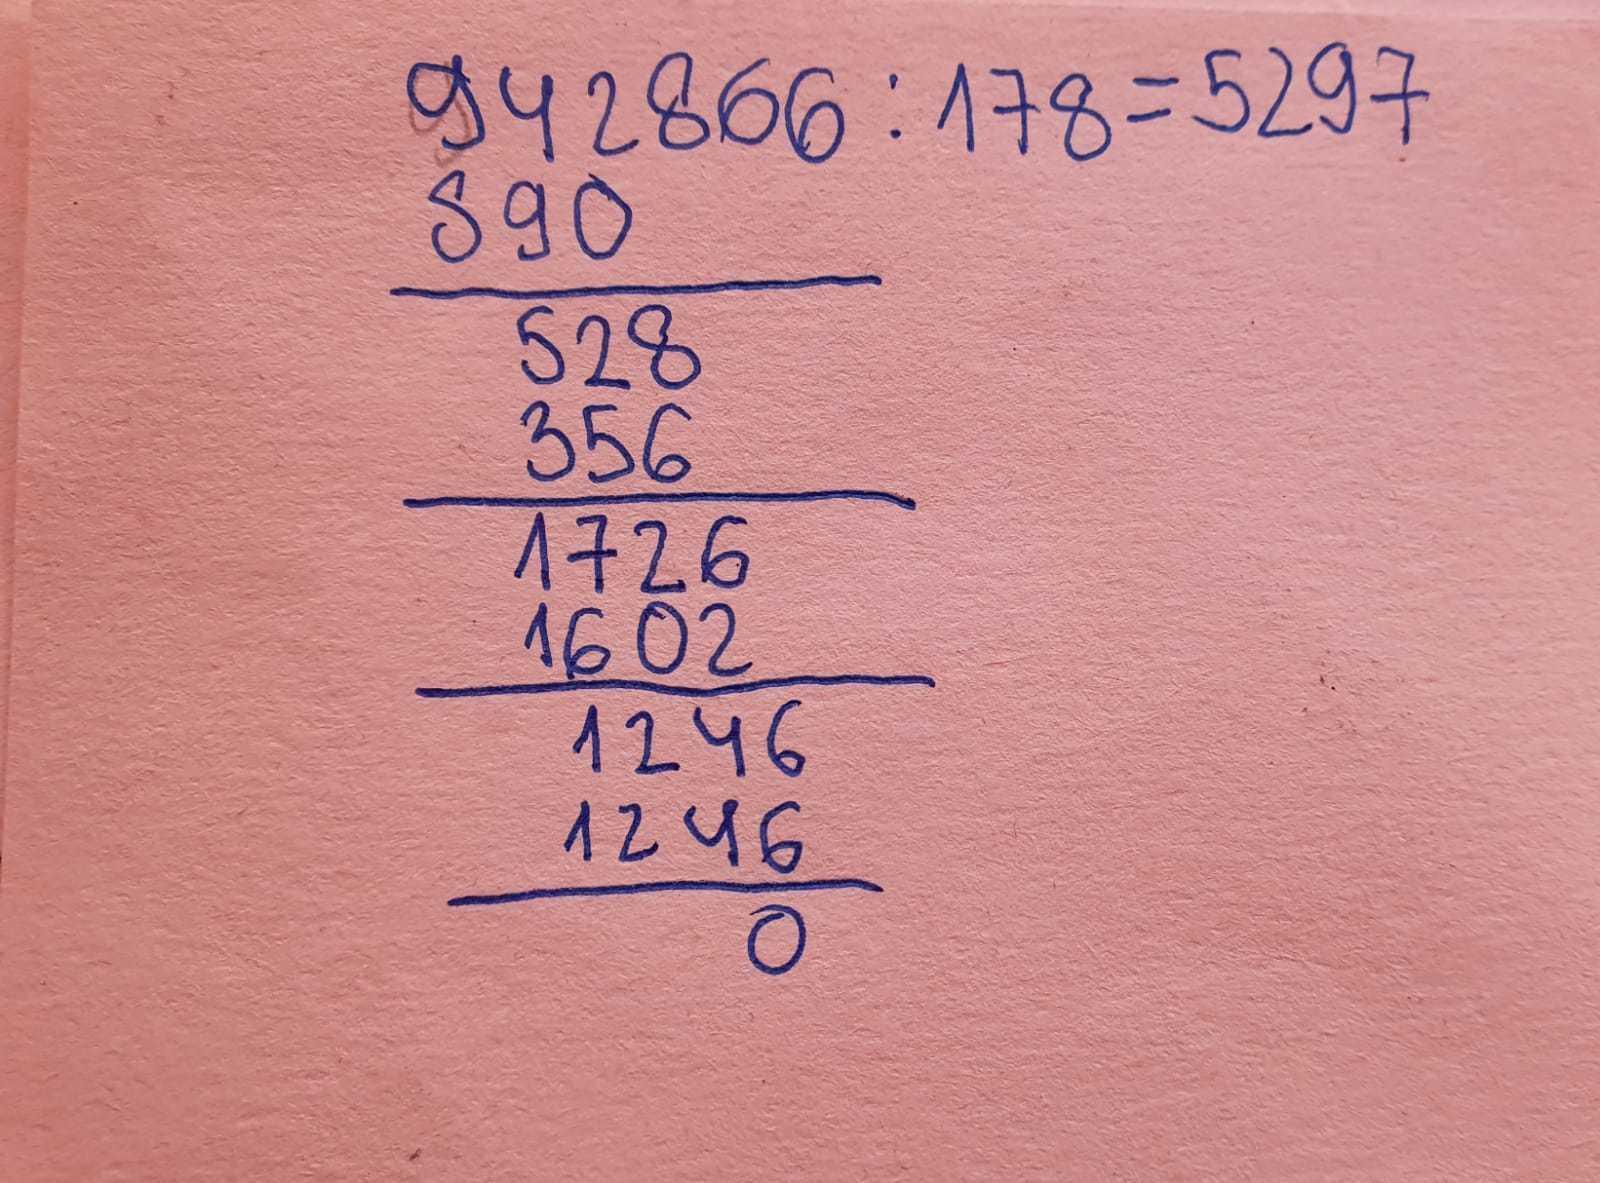 942866 : 178 = 5297
890
528
356
1726
1602
1246
1246
0